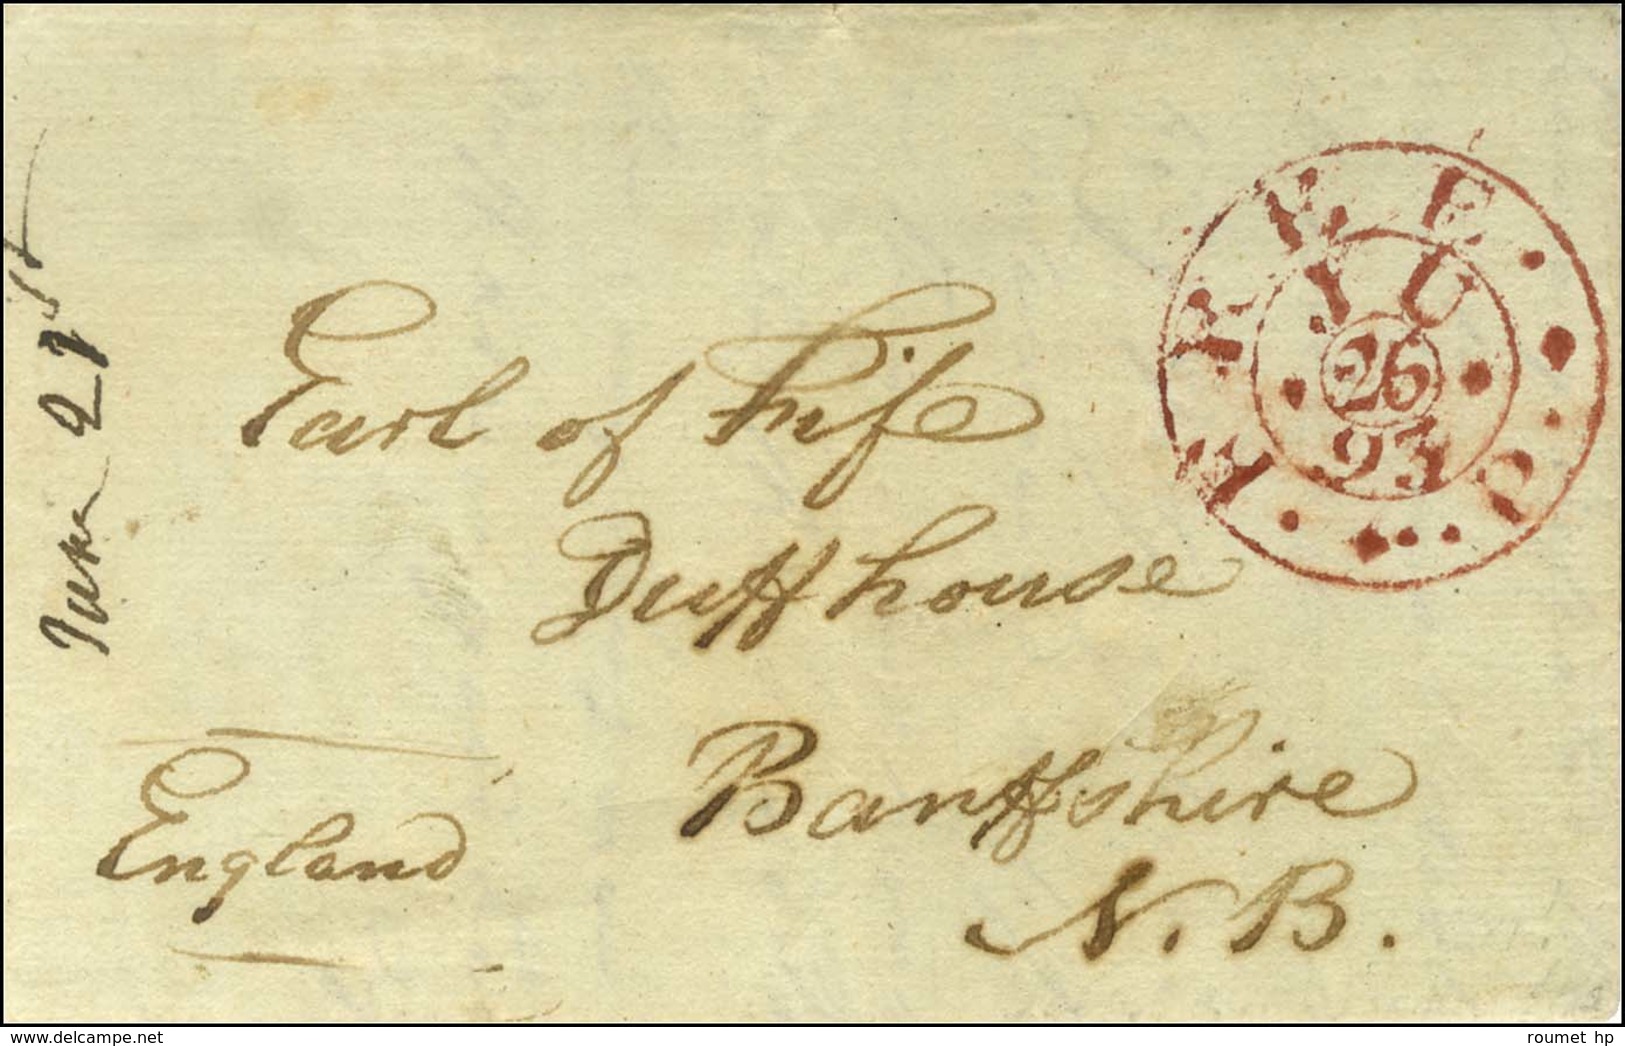 June 21st
Earl of Fife
Duffhouse
Banffshire
N.B.
England
FREE
IU
26
93
P
www.delcampe.net
roumet hp